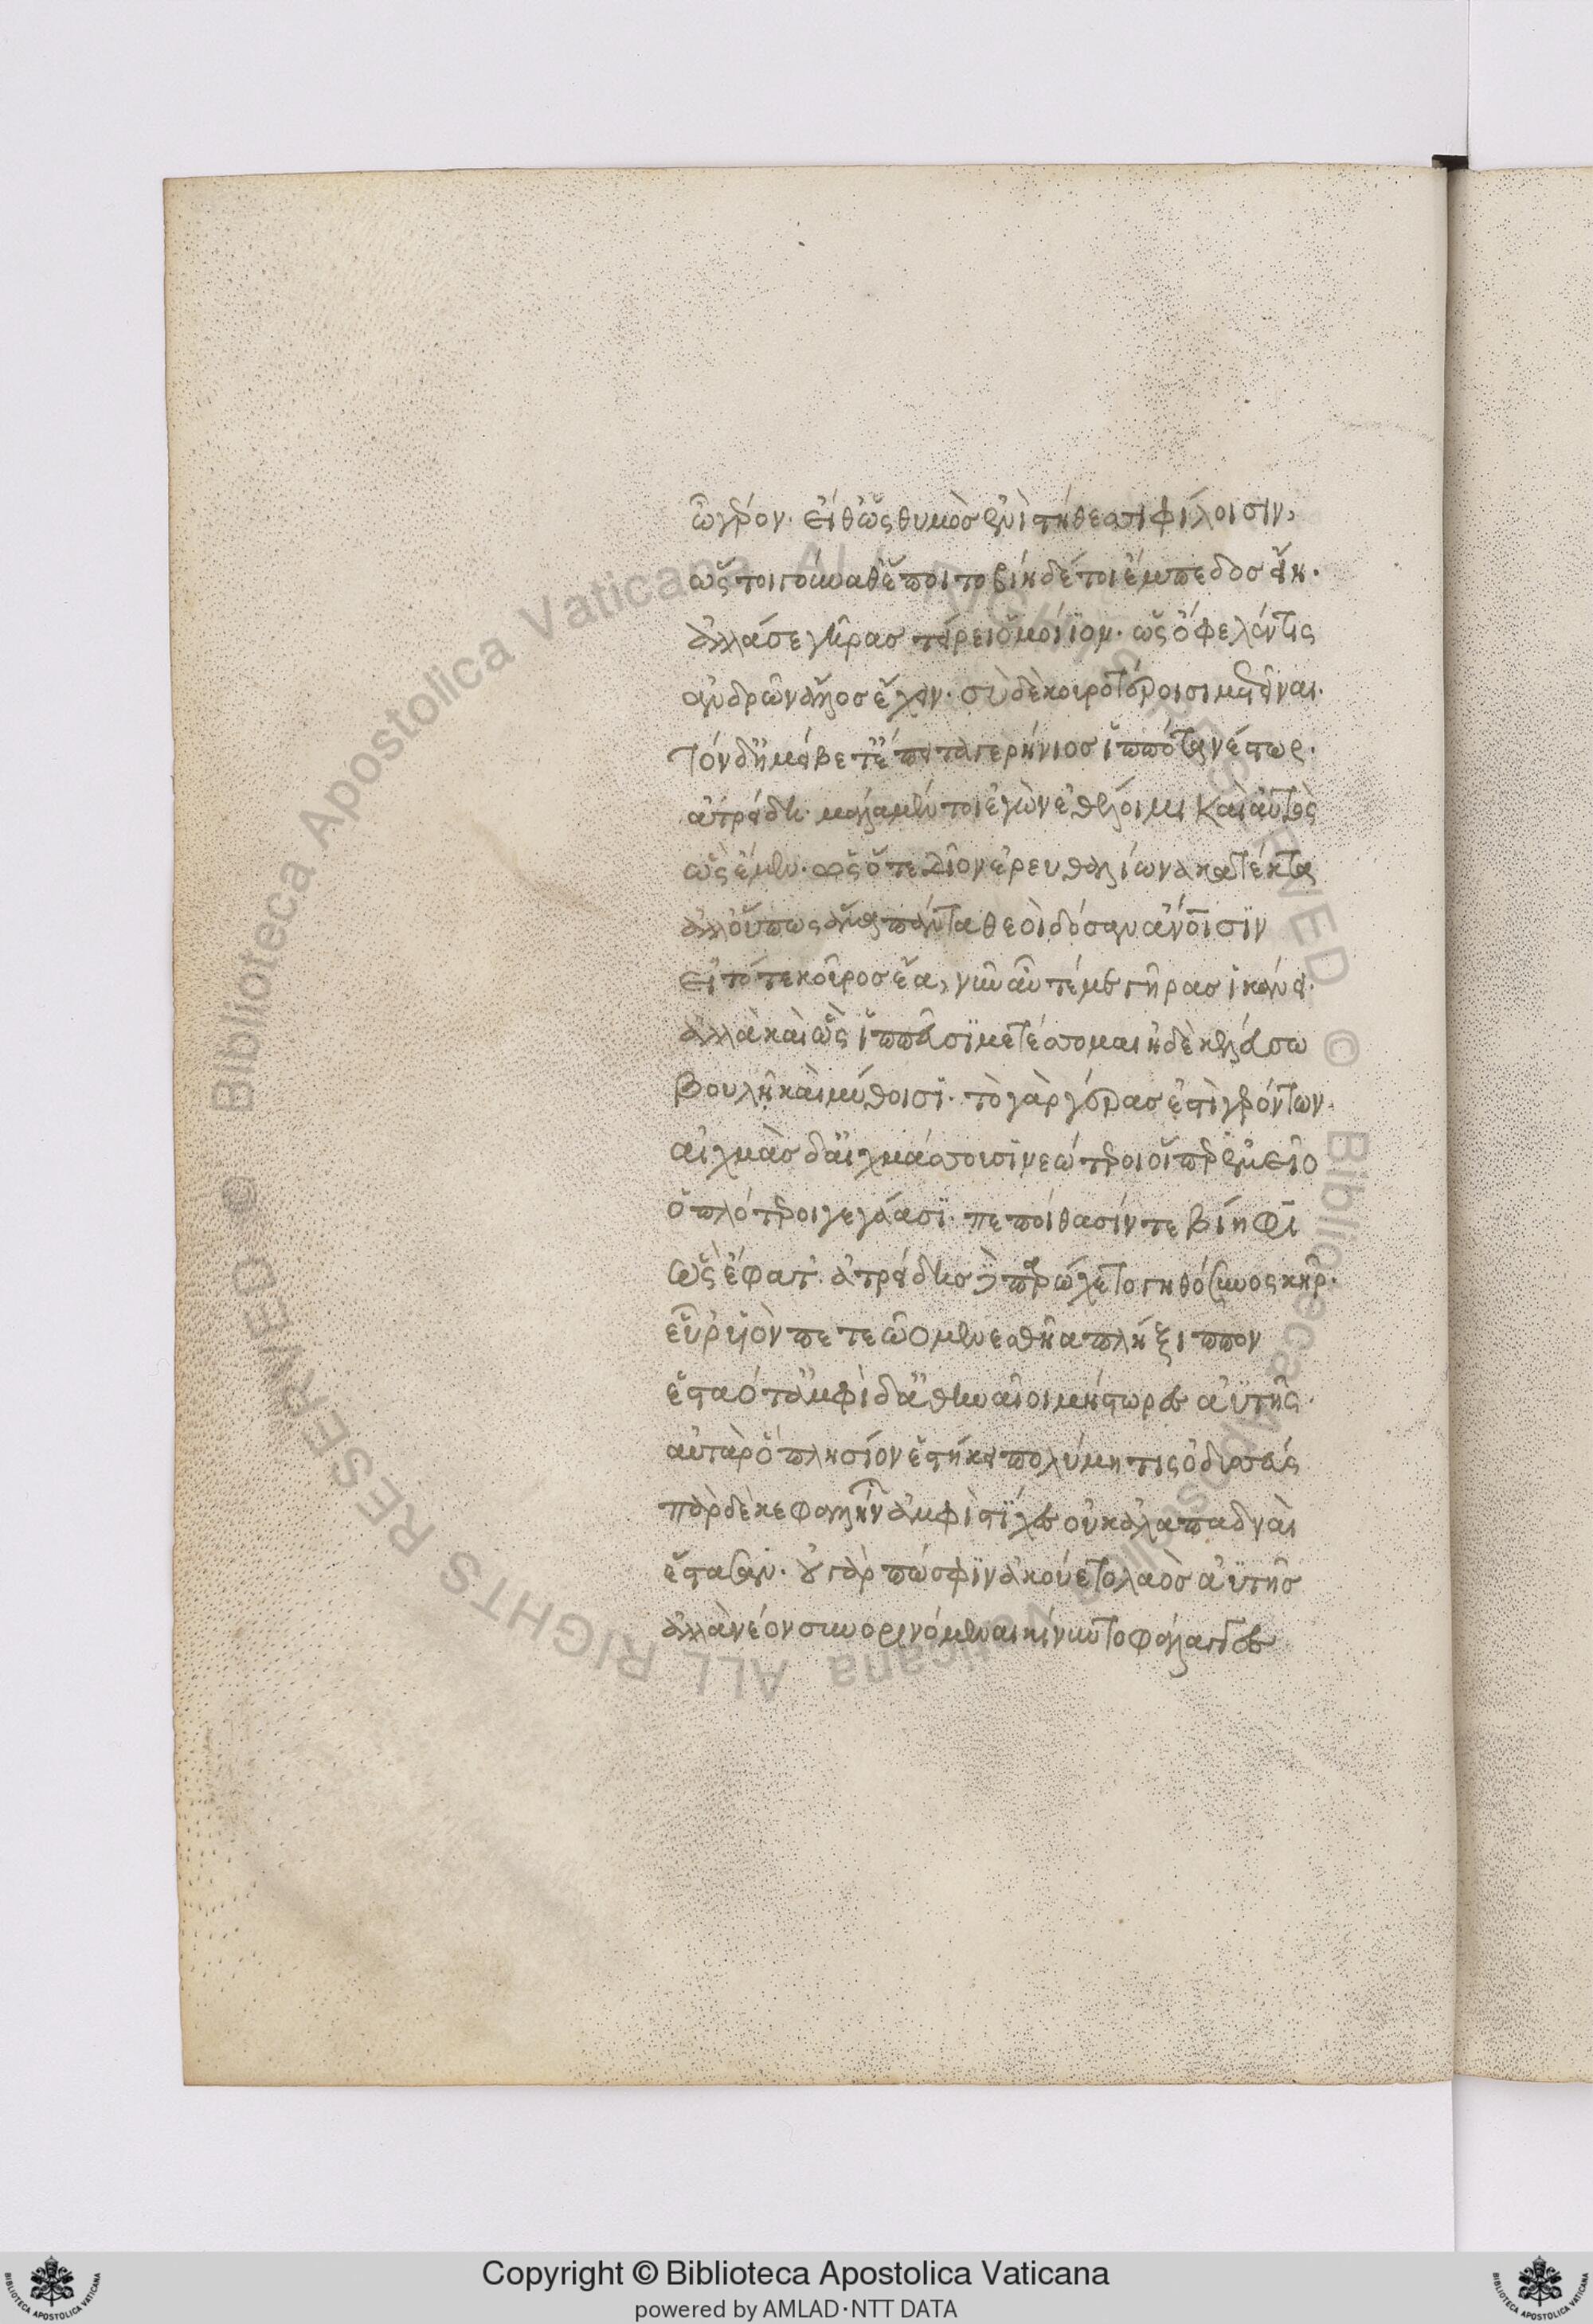 ὦ γέρον. εἴθ' ὡς θυμὸς ἐνὶ στήθεσσι φίλοισιν,
ὥς τοι γούναθ' ἕποιτο βίη δέ τοι ἔμπεδος εἴη.
ἀλλά σε γῆρας τείρει ὁμοίϊον. ὡς ὄφελέν τις
ἀνδρῶν ἄλλος ἔχειν. σὺ δὲ κουροτέροισι μετεῖναι.
Τὸν δ' ἠμείβετ' ἔπειτα γερήνιος ἱππότα νέστωρ.
ἀτρείδη. μάλα μέν τοι ἐγὼν ἐθέλοιμι καὶ αὐτὸς
ὣς ἔμεν. ὡς ὅτε δῖον ἐρευθαλίωνα κατέκτα
ἀλλ' οὔπως ἅμα πάντα θεοὶ δόσαν ἀνοισϊν
εἰ τότε κοῦρος ἔα, νῦν αὖτέ με γῆρας ἱκάνει.
ἀλλὰ καὶ ὣς ἱππεῦσϊ μετέσσομαι ἠδὲ κελεύσω
βουλῆ καὶ μύθοισϊ. τὸ γὰρ γέρας ἐστὶ γερόντων.
αἰχμὰς δ' αἰχμάσσουσϊ νεώτεροι οἵπερ ἐμεῖο
ὁπλότεροι γεγάασϊ. πεποίθασίν τε βίηφϊ
ὣς ἔφατ'. ἀτρείδης δὲ παρώχετο γηθόσυνος κῆρ.
εὗρ' υἱὸν πετεῶο μενεσθῆα πλήξιππον
ἑσταότ' ἀμφὶ δ' ἀθηναῖοι μήστωρες ἀϋτῆς.
αὐτὰρ ὃ πλησίον ἑστήκει πολύμητις ὀδυσσεύς
πὰρ δὲ κεφαλλήνων ἀμφὶ στίχες οὐκ ἀλαπαδναὶ
ἕστασαν. οὐ γάρ πώ σφϊν ἀκούετο λαὸς ἀϋτῆς
ἀλλὰ νέον συνορινόμεναι κίνυντο φάλαγγες
Copyright © Biblioteca Apostolica Vaticana
powered by AMLAD·NTT DATA
© Biblioteca Apostolica Vaticana ALL RIGHTS RESERVED © Biblioteca Apostolica Vaticana ALL RIGHTS RESERVED
BIBLIOTECA APOSTOLICA VATICANA
BIBLIOTECA APOSTOLICA VATICANA